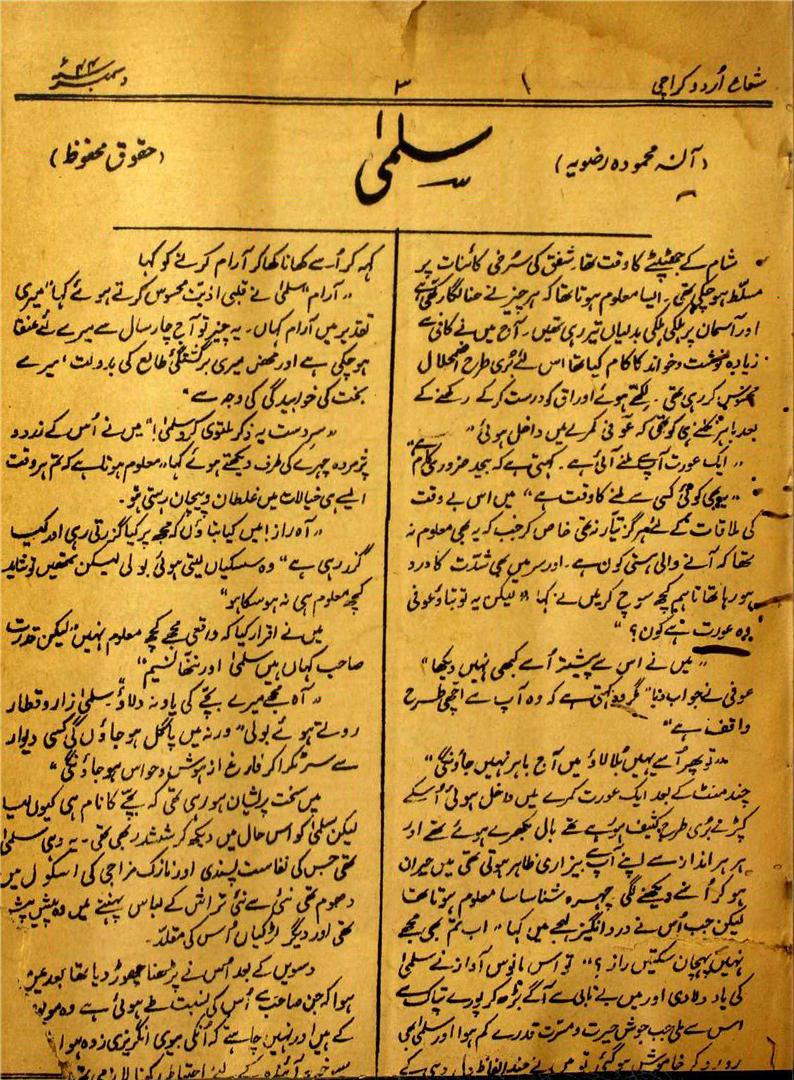 شعاع اُردو کراچی
۱
۳
دسمبر ۴۴ء
(آنسہ محمودہ رضویہ)
سلمیٰ
(حقوق محفوظ)
شام کے جھٹپٹے کا وقت تھا۔ شفق کی سُرخی کائنات پر
مسلّط ہو چکی تھی۔ ایسا معلوم ہوتا تھا کہ ہر چیز نے حنا لگا رکھی ہے
اور آسمان پر ہلکی ہلکی بدلیاں تیر رہی تھیں۔ آج میں نے کافی سے
زیادہ نوشت و خواند کا کام کیا تھا اس لئے بُری طرح اضمحلال
محسوس کر رہی تھی۔ لکھے ہوئے اوراق کو درست کر کے رکھنے کے
بعد باہر نکلنے ہی کو تھی کہ عوفی کمرے میں داخل ہوئی "
" ایک عورت آپ سے ملنے آئی ہے۔ کہتی ہے کہ بیحد ضروری کام ہے"
" یہ بھی کوئی کسی سے ملنے کا وقت ہے " میں اس بے وقت
کی ملاقات کے لئے ہرگز تیار نہ تھی خاص کر جب کہ یہ بھی معلوم نہ
تھا کہ آنے والی ہستی کون ہے۔ اور سر میں بھی شدّت کا درد
ہو رہا تھا تاہم کچھ سوچ کر میں نے کہا " لیکن یہ تو بتاؤ عوفی
وہ عورت ہے کون؟ "
" میں نے اس سے پیشتر اُسے کبھی نہیں دیکھا "
عوفی نے جواب دیا " مگر وہ کہتی ہے کہ وہ آپ سے اچھی طرح
واقف ہے "
" تو پھر اُسے یہیں بُلا لاؤ میں آج باہر نہیں جاؤنگی "
چند منٹ کے بعد ایک عورت کمرے میں داخل ہوئی اُسکے
کپڑے بُری طرح کثیف ہو رہے تھے بال بکھرے ہوئے تھے اور
ہر ہر انداز سے اپنے آپ سے بیزاری ظاہر ہوتی تھی میں حیران
ہو کر اُسے دیکھنے لگی چہرہ شناسا سا معلوم ہوتا تھا
لیکن جب اُس نے درد انگیز لہجے میں کہا " اب تم بھی مجھے
نہیں پہچان سکتیں راز؟ " تو اس مانوس آواز نے سلمیٰ
کی یاد دلا دی اور میں بے تابی سے آگے بڑھ کر پورے تپاک سے
اس سے ملی جب جوشِ حیرت و مسرّت قدرے کم ہوا اور سلمیٰ بھی
رو رو کر خاموش ہو گئی تو میں نے چند الفاظ دل دہی کے
کہہ کر اُسے کھانا کھا کر آرام کرنے کو کہا
" آرام " سلمیٰ نے قلبی اذیت محسوس کرتے ہوئے کہا " میری
تقدیر میں آرام کہاں۔ یہ چیز تو آج چار سال سے میرے لئے عنقا
ہو چکی ہے اور محض میری برگشتگیٔ طالع کی بدولت، میرے
بخت کی خوابیدگی کی وجہ سے "
" سرِدست یہ ذکر ملتوی کرو سلمیٰ! " میں نے اُس کے زرد و
پژمردہ چہرے کی طرف دیکھتے ہوئے کہا " معلوم ہوتا ہے کہ تم ہر وقت
ایسے ہی خیالات میں غلطاں و پیچاں رہتی ہو۔
" آہ راز! میں کیا بتاؤں کہ مجھ پر کیا گزرتی رہی اور کیا
گزر رہی ہے " وہ سسکیاں لیتی ہوئی بولی لیکن تمھیں تو شاید
کچھ معلوم ہی نہ ہو سکا ہو "
میں نے اقرار کیا کہ واقعی مجھے کچھ معلوم نہیں " لیکن قدرت
صاحب کہاں ہیں سلمیٰ اور ننھا نسیم "
" آہ مجھے میرے بچّے کی یاد نہ دلاؤ۔ سلمیٰ زار و قطار
روتے ہوئے بولی " ورنہ میں پاگل ہو جاؤں گی کسی دیوار
سے سر ٹکرا کر فارغ از ہوش و حواس ہو جاؤنگی "
میں سخت پریشان ہو رہی تھی کہ بچّے کا نام ہی کیوں لیا
لیکن سلمیٰ کو اس حال میں دیکھ کر ششدر بھی تھی۔ یہ وہی سلمیٰ
تھی جس کی نفاست پسندی اور نازک مزاجی کی اسکول میں
دھوم تھی نئی سے نئی تراش کے لباس پہننے میں وہ پیش پیش
تھی اور دیگر لڑکیاں اُس کی مقلّد۔
دسویں کے بعد اُس نے پڑھنا چھوڑ دیا تھا بعد میں
ہوا کہ جن صاحب سے اُس کی نسبت طے ہوئی ہے وہ
کے ہیں اور نہیں چاہتے کہ اُنکی بیوی انگریزی زدہ ہو
آئندہ کے لئے احتیاط رکھنا لازمی تھا